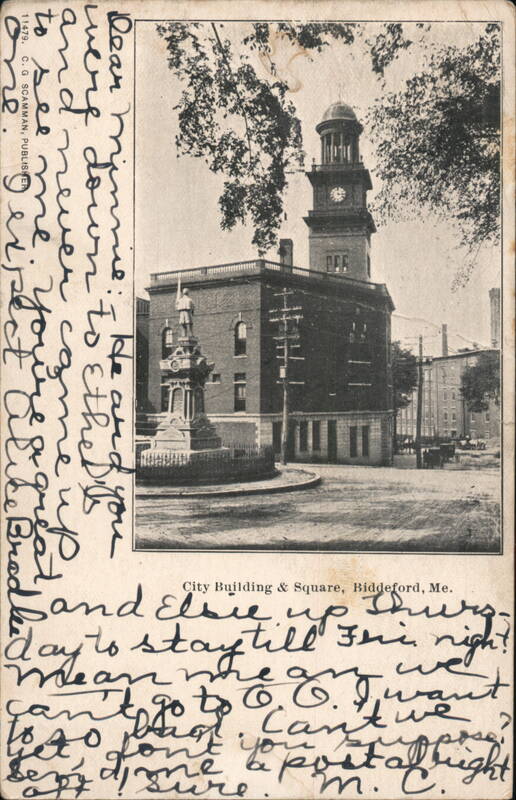 11479. C. G. SCAMMAN, PUBLISHER
Dear Minnie:- Heard you
were down to Ethel's
and never came up
to see me you're a great
one. I expect Alice Bradlee
City Building & Square, Biddeford, Me.
and Elsie up Thurs-
day to stay till Fri. night.
Mean mean we
can't go to O. O. I want
to so bad. Can't we
yet, don't you suppose?
send me a postal right
off, sure. M. C.